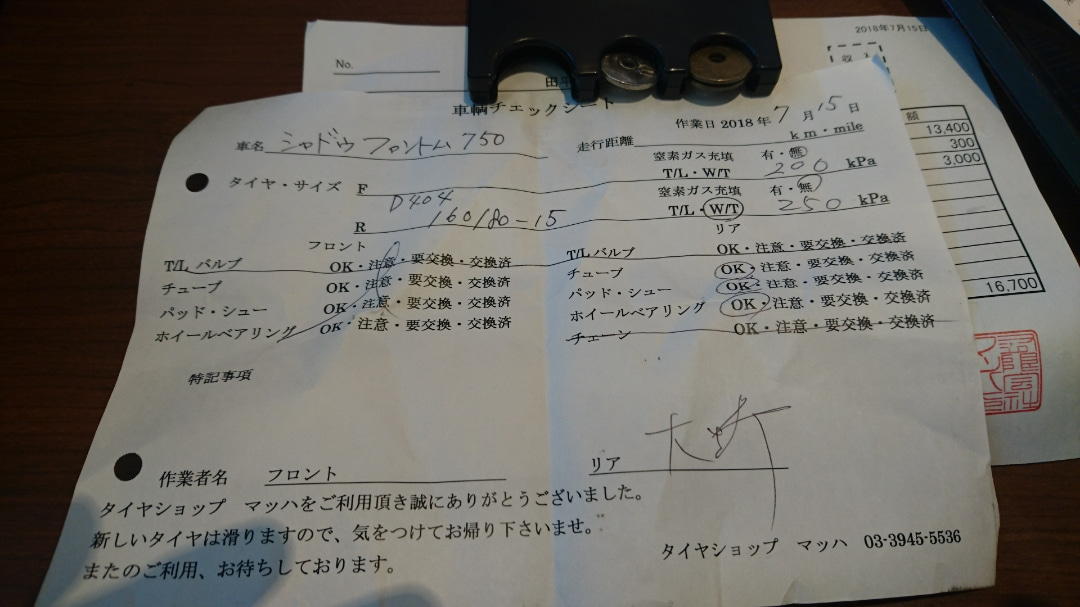 2018年7月15日
No.
車輌チェックシート
作業日 2018年 7月 15日
車名 シャドウ ファントム 750
走行距離 km・mile
タイヤ・サイズ F
窒素ガス充填 有・無
T/L・W/T 200 kPa
D404
R 160/80-15
窒素ガス充填 有・無
T/L・W/T 250 kPa
フロント
リア
T/L バルブ OK・注意・要交換・交換済
T/L バルブ OK・注意・要交換・交換済
チューブ OK・注意・要交換・交換済
チューブ OK・注意・要交換・交換済
パッド・シュー OK・注意・要交換・交換済
パッド・シュー OK・注意・要交換・交換済
ホイールベアリング OK・注意・要交換・交換済
ホイールベアリング OK・注意・要交換・交換済
チェーン OK・注意・要交換・交換済
特記事項
作業者名 フロント
リア
タイヤショップ マッハをご利用頂き誠にありがとうございました。
新しいタイヤは滑りますので、気をつけてお帰り下さいませ。
またのご利用、お待ちしております。
タイヤショップ マッハ 03-3945-5536
額
13,400
300
3,000
16,700